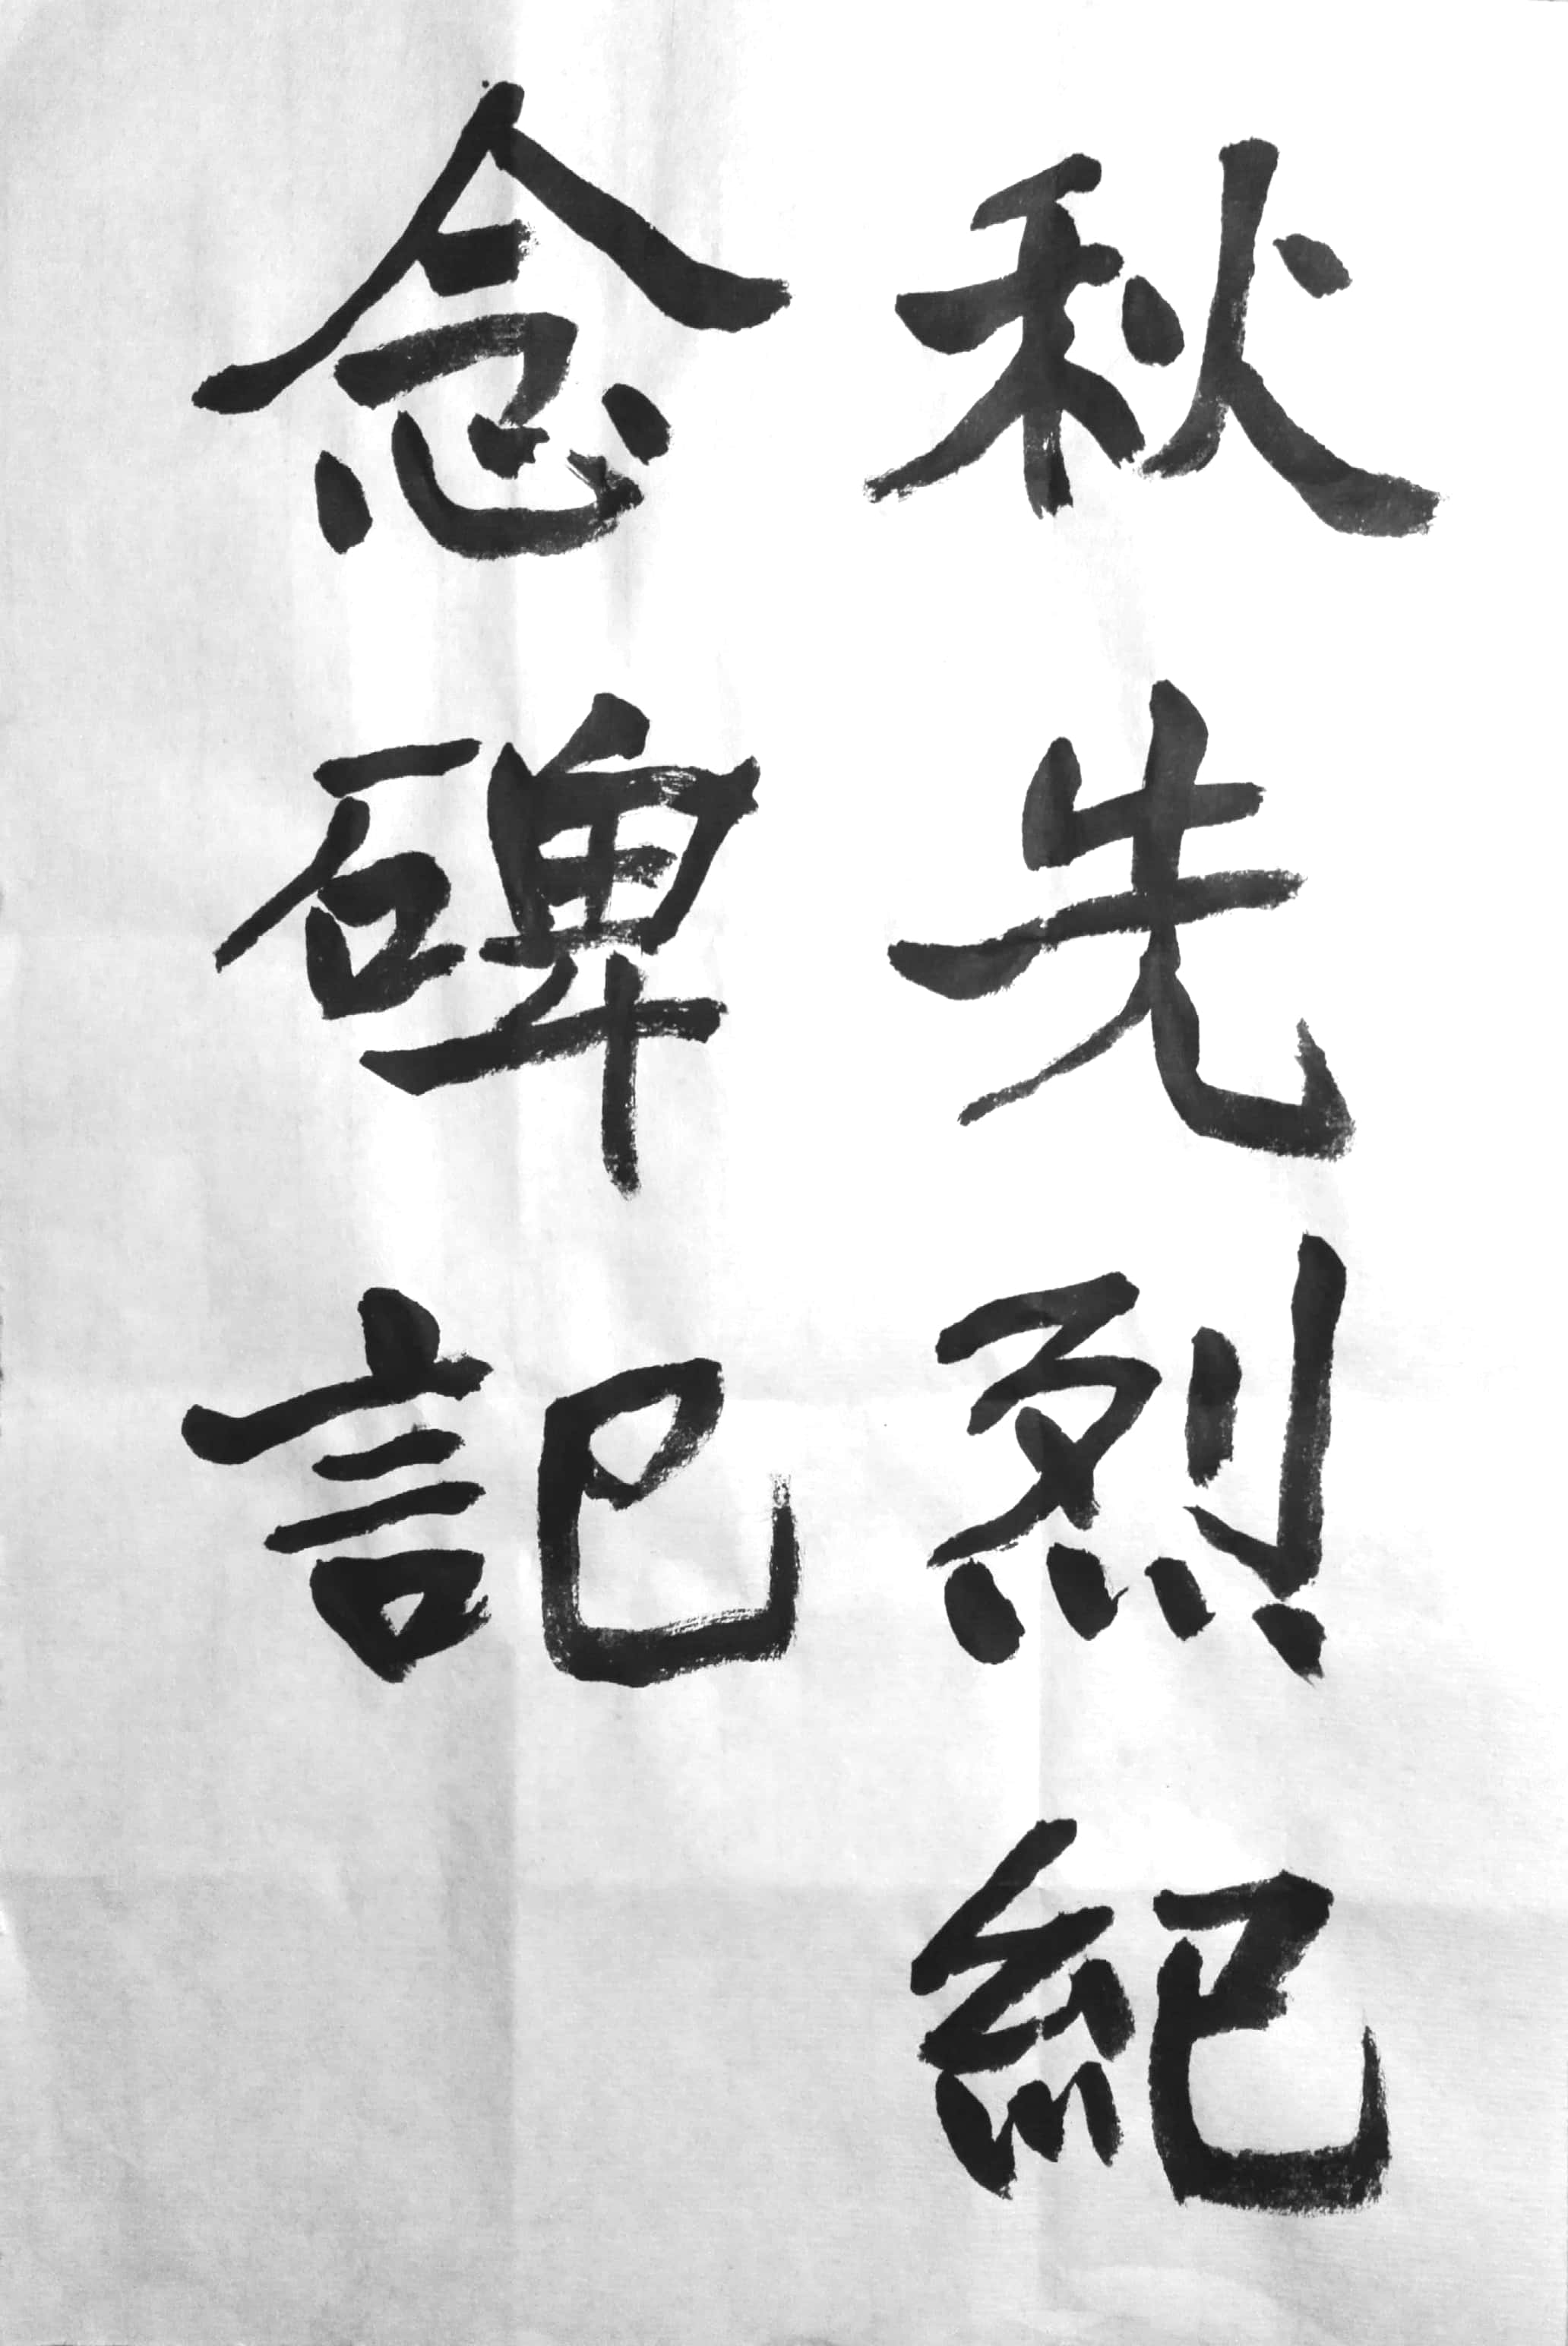 秋先烈紀
念碑記